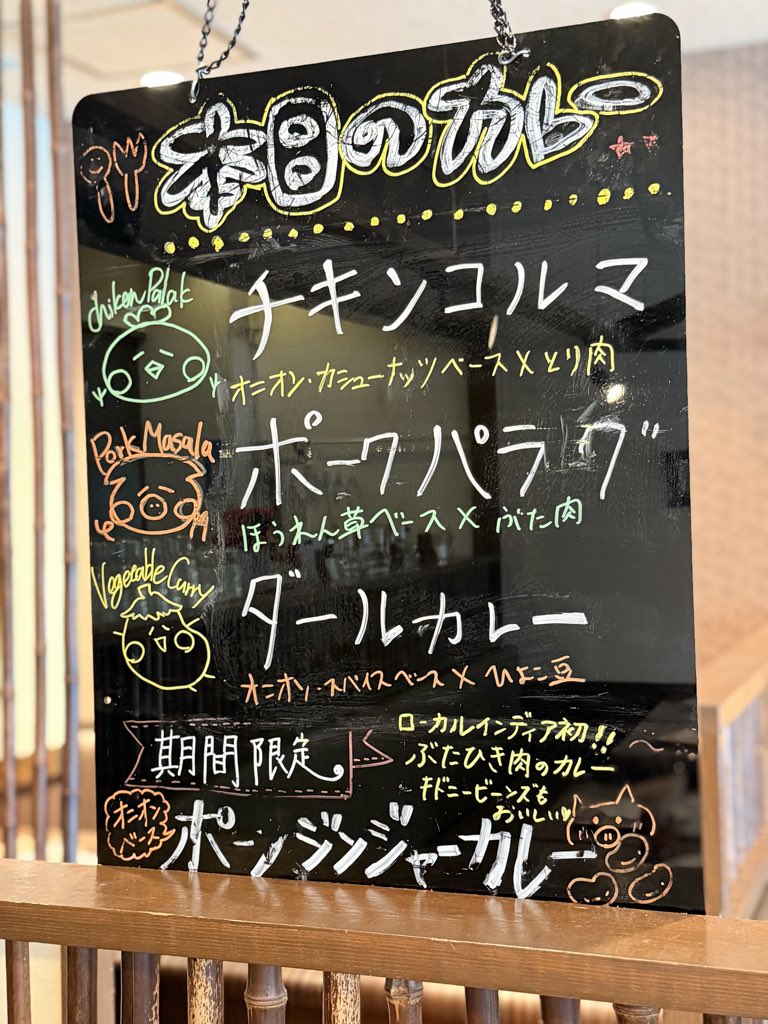 本日のカレー
chiken Palak
チキンコルマ
オニオン・カシューナッツベース×とり肉
Pork Masala
ポークパラグ
ほうれん草ベース×ぶた肉
Vegecable Curry
ダールカレー
オニオン・スパイスベース×ひよこ豆
期間限定
ローカルインディア初!!
ぶたひき肉のカレー
キドニービーンズも
おいしい♡
オニオン
ベース
ポークジンジャーカレー